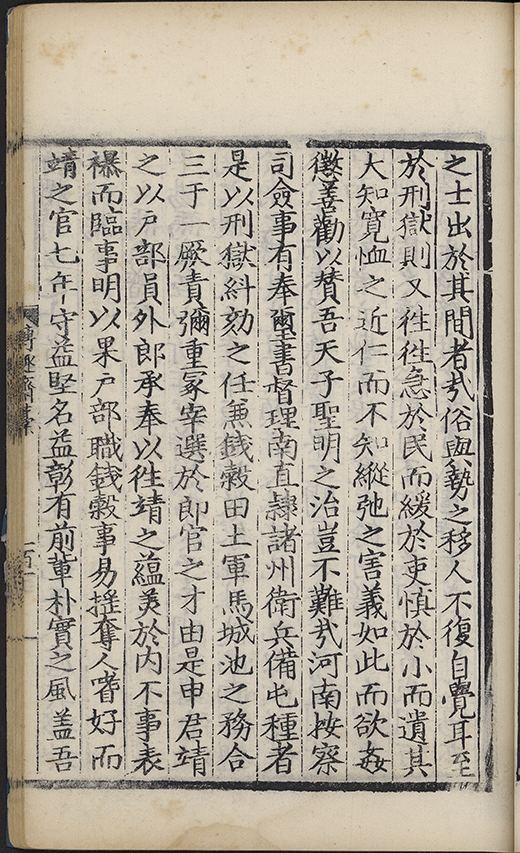 之士出於其間者㢤俗與勢之移人不復自覺耳至
於刑獄則又徃徃急於民而緩於吏慎於小而遺其
大知寛恤之近仁而不知縱弛之害義如此而欲姦
懲善勸以賛吾天子聖明之治豈不難㢤河南按察
司僉事有奉璽書督理南直𨽻諸州衛兵備屯種者
是以刑獄糾劾之任兼錢榖田土軍馬城池之務合
三于一厥責彌重冡宰選於郎官之才由是申君靖
之以户部員外郎承奉以徃靖之藴美於内不事表
襮而臨事明以果户部職錢榖事易揺奪人嗜好而
靖之官七年守益堅名益彰有前軰朴實之風盖吾